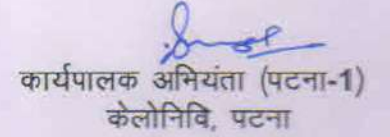 कार्यपालक अभियंता (पटना-1)
केलोनिवि, पटना